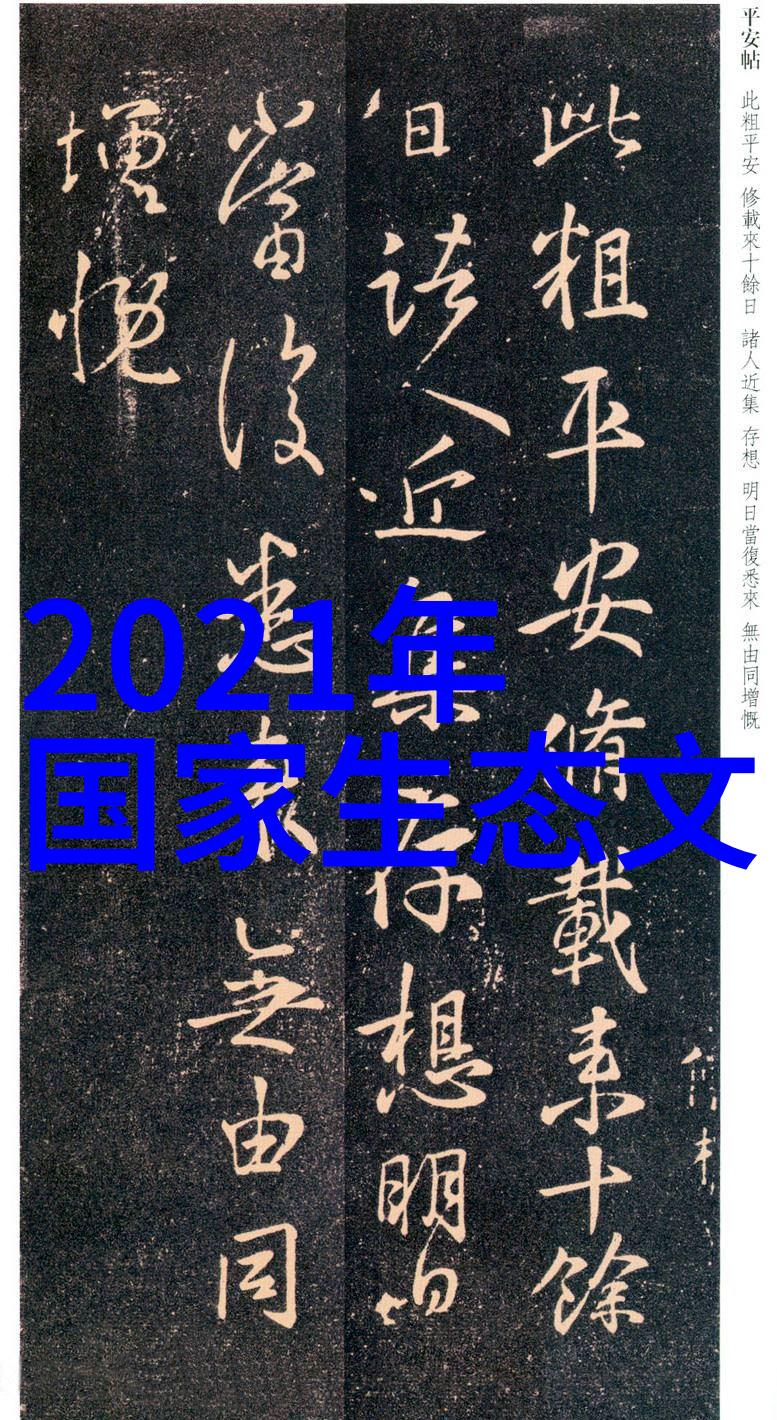 平安帖 此粗平安 修載來十餘日 諸人近集 存想 明日當復悉來 無由同增慨
此粗平安脩載来十餘
日諸人近集存想明日
當復悉来無由同
增慨
2021年
国家生态文